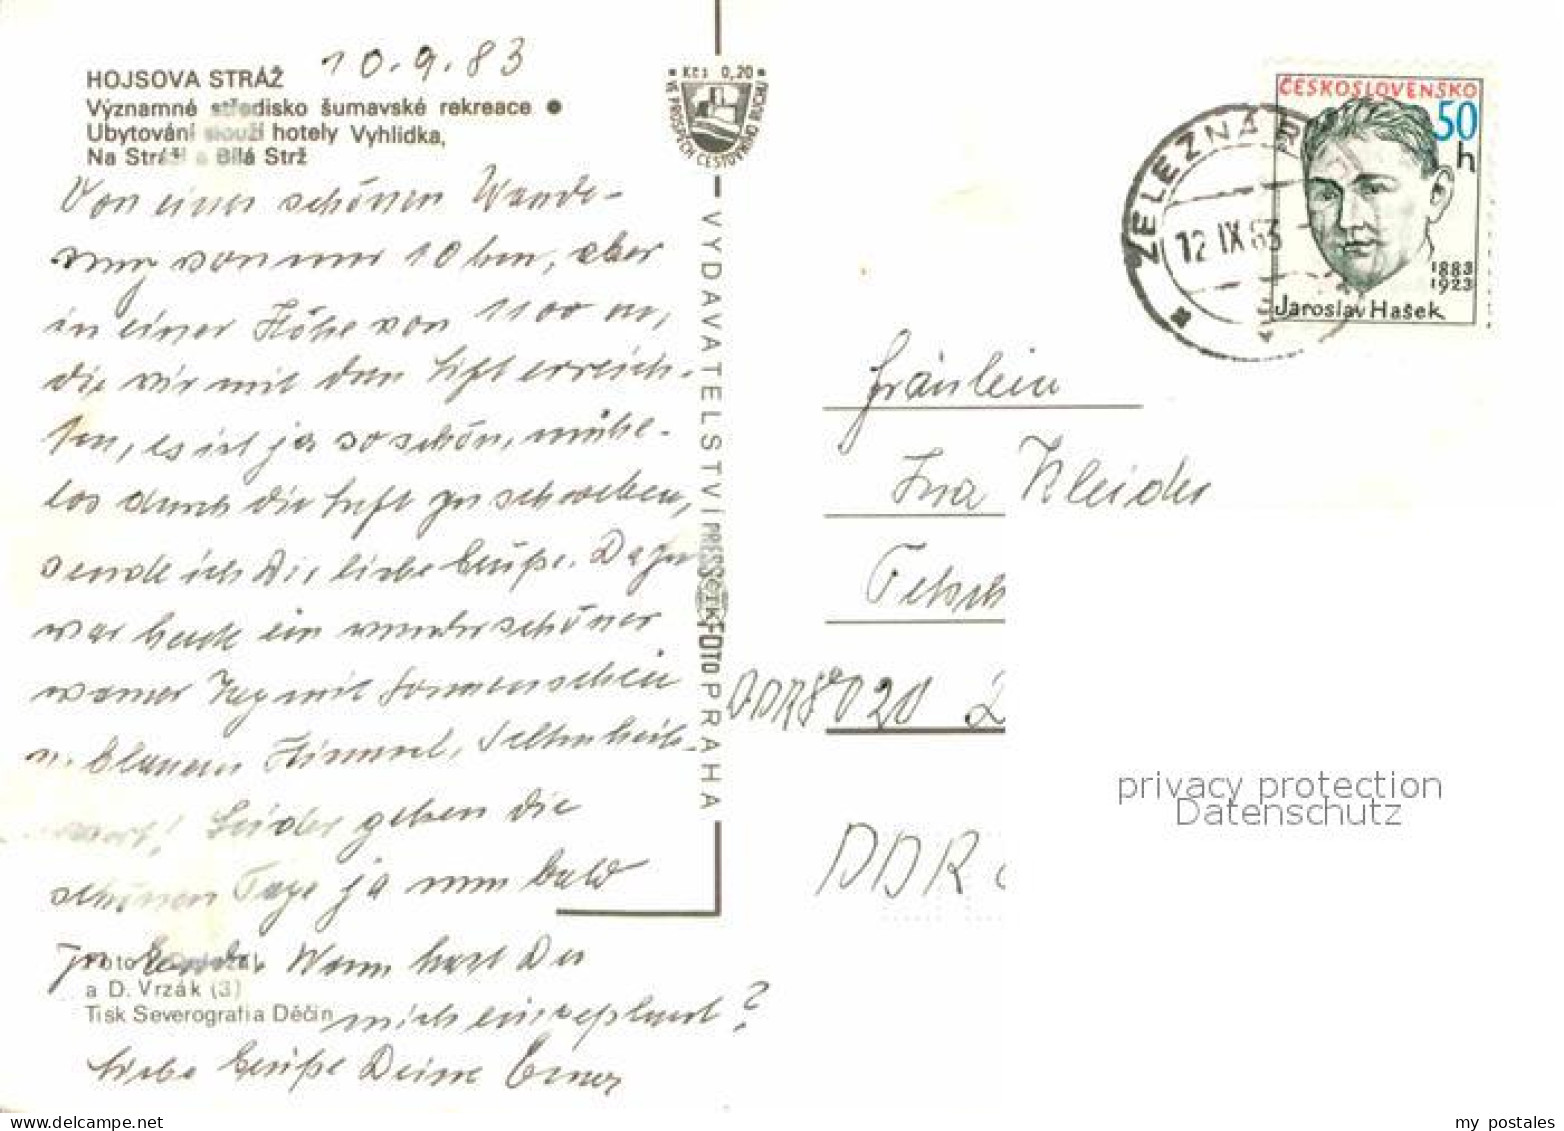 10.9.83
HOJSOVA STRÁŽ
Významné středisko šumavské rekreace ●
Ubytování slouží hotely Vyhlídka,
Na Stráži a Bílá Strž
Von einer schönen Wande-
rung von nur 10 km, aber
in einer Höhe von 1100 m,
die wir mit dem Lift erreich-
ten, es ist ja so schön, mühe-
los durch die Luft zu schweben,
sende ich Dir liebe Grüße. Dazu
war heute ein wunderschöner
warmer Tag mit Sonnenschein
u. blauem Himmel, Seltenheits-
wert! Leider gehen die
schönen Tage ja nun bald
zu Ende. Wann hast Du
mich eingeplant?
Liebe Grüße Deine
Foto
a D. Vrzák (3)
Tisk Severografia Děčín
Kčs 0,20
VE PROSPĚCH CESTOVNÍHO RUCHU
VYDAVATELSTVÍ PRESSFOTO PRAHA
ČTK
ČESKOSLOVENSKO
50
h
1883
1923
Jaroslav Hašek
ŽELEZNÁ RU
12 IX 83
Fräulein
DDR 8020
DDR
privacy protection
Datenschutz
my postales